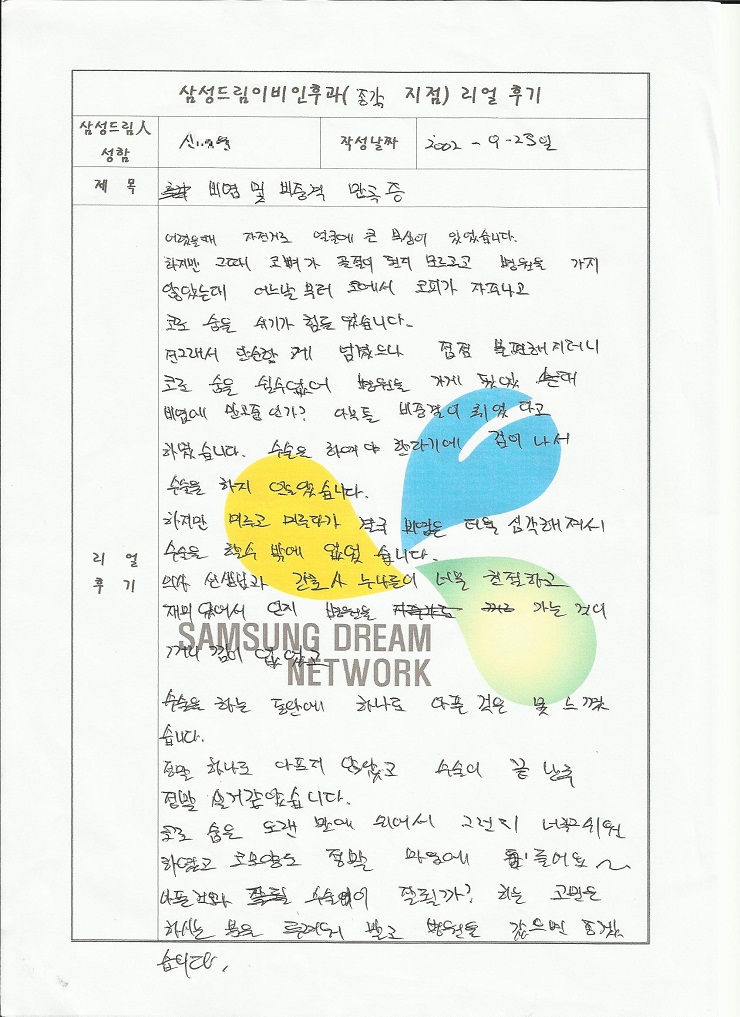 삼성드림이비인후과(종각 지점) 리얼 후기
삼성드림人 성함
작성날짜
2002 - 9 - 25일
제 목
비염 및 비중격 만곡증
리 얼 후 기
어렸을때 자전거로 얼굴에 큰 부상이 있었습니다.
하지만 그때 코뼈가 골절이 된지 모르고 병원을 가지
않았는데 어느날 부터 코에서 코피가 자주나고
코로 숨을 쉬기가 힘들었습니다.
단순한 게 넘겼으나 점점 불편해지더니
코로 숨을 쉴수없어 병원을 가게 되었었는데
비염에 만곡증인가? 아무튼 비중격이 휘었다고
하였습니다. 수술은 하여야 한다기에 겁이 나서
수술을 하지 않았습니다.
하지만 미루고 미루다가 결국 비염은 더욱 심각해져서
수술을 할수 밖에 없었습니다.
의사 선생님과 간호사 누나들이 너무 친절하고
재미 있어서 인지 병원을 가는 것이
꺼리낌이 없었고
SAMSUNG DREAM
NETWORK
수술을 하는 동안에 하나도 아픈 것은 못 느꼈
습니다.
정말 하나도 아프지 않았고 수술이 끝난후
정말 살거같았습니다.
코로 숨은 오랜 만에 쉬어서 그런지 너무 쉬원
하였고 코모양도 정말 마음에 들어요~
수술이 잘될까? 하는 고민은
하시는 분은 바로 병원을 갔으면 좋겠
습니다.